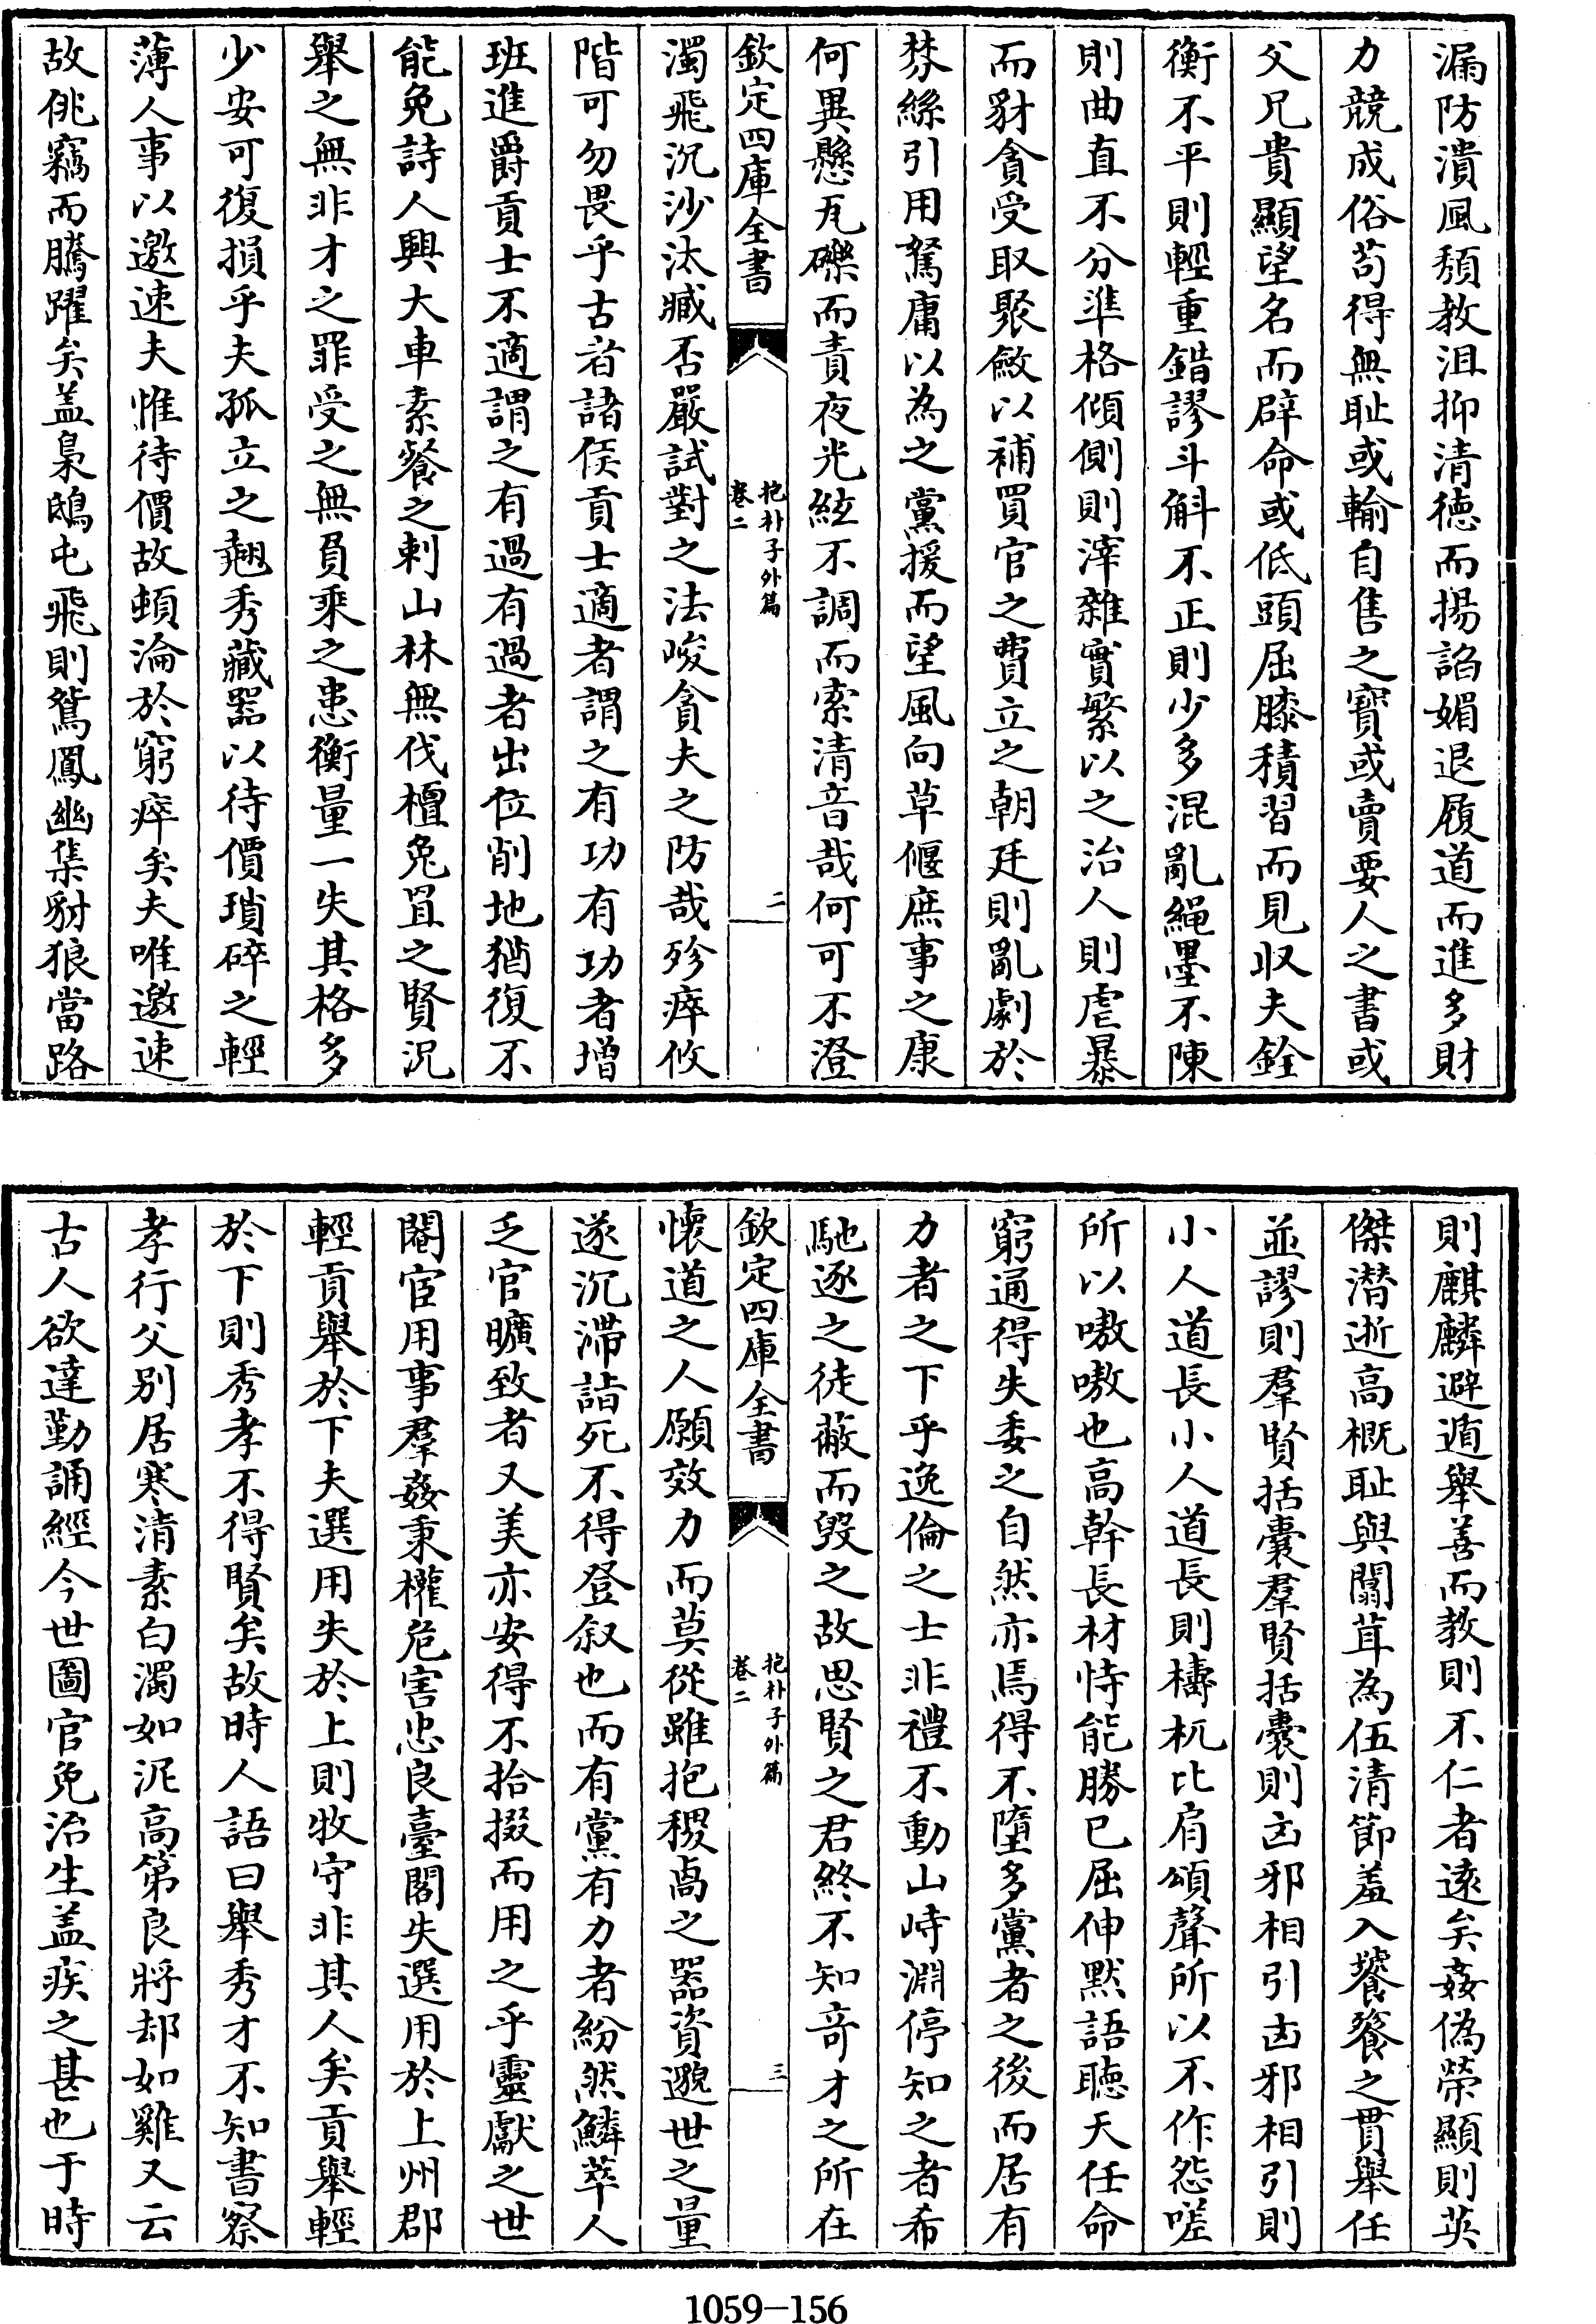 漏防潰風頹教沮抑清德而揚諂媚退履道而進多財
力競成俗苟得無恥或輸自售之寶或賣要人之書或
父兄貴顯望名而辟命或低頭屈膝積習而見収夫銓
衡不平則輕重錯謬斗斛不正則少多混亂繩墨不陳
則曲直不分準格傾側則滓雜實繁以之治人則虐暴
而豺貪受取聚斂以補買官之費立之朝廷則亂劇於
棼絲引用駑庸以為之黨援而望風向草偃庶事之康
何異懸瓦礫而責夜光絃不調而索清音哉何可不澄
欽定四庫全書
抱朴子外篇
卷二
二
濁飛沉沙汰臧否嚴試對之法峻貪夫之防哉殄瘁攸
階可勿畏乎古者諸侯貢士適者謂之有功有功者增
班進爵貢士不適謂之有過有過者出位削地猶復不
能免詩人興大車素餐之刺山林無伐檀兔罝之賢況
舉之無非才之罪受之無負乘之患衡量一失其格多
少安可復損乎夫孤立之翹秀藏器以待價瑣碎之輕
薄人事以邀速夫惟待價故頓淪於窮瘁矣夫唯邀速
故佻竊而騰躍矣盖梟鴟屯飛則鴛鳳幽集豺狼當路
則麒麟避遁舉善而教則不仁者逺矣姦偽榮顯則英
傑潛逝高概恥與闒茸為伍清節羞入饕餮之貫舉任
並謬則羣賢括囊羣賢括囊則凶邪相引凶邪相引則
小人道長小人道長則檮杌比肩頌聲所以不作怨嗟
所以嗷嗷也高幹長材恃能勝已屈伸默語聽天任命
窮通得失委之自然亦焉得不墮多黨者之後而居有
力者之下乎逸倫之士非禮不動山峙淵停知之者希
馳逐之徒蔽而毀之故思賢之君終不知竒才之所在
欽定四庫全書
抱朴子外篇
卷二
三
懷道之人願效力而莫從雖抱稷卨之器資邈世之量
遂沉滯詣死不得登叙也而有黨有力者紛然鱗萃人
乏官曠致者又美亦安得不拾掇而用之乎靈獻之世
閹宦用事羣姦秉權危害忠良臺閣失選用於上州郡
輕貢舉於下夫選用失於上則牧守非其人矣貢舉輕
於下則秀孝不得賢矣故時人語曰舉秀才不知書察
孝行父別居寒清素白濁如泥高第良將却如雞又云
古人欲達勤誦經今世圖官免治生盖疾之甚也于時
1059-156